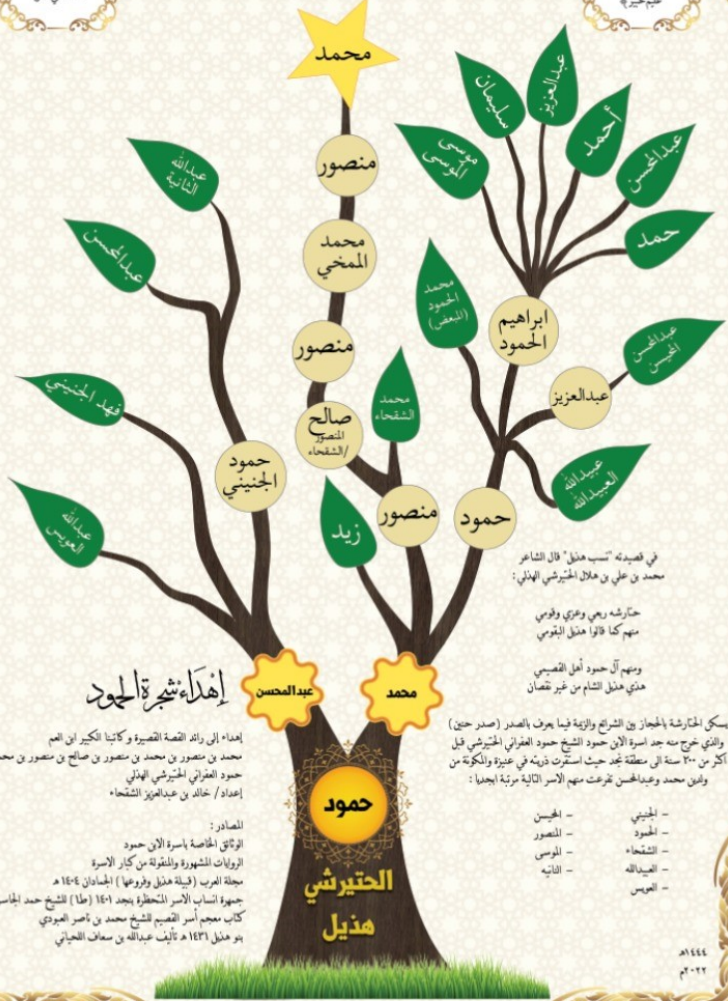 محمد
منصور
محمد
الممخي
منصور
صالح
المنصور
/الشقحاء
منصور
محمد
الشقحاء
زيد
عبدالعزيز
سليمان
أحمد
موسى
الموسى
عبدالمحسن
حمد
ابراهيم
الحمود
محمد
الحمود
(المبعض)
عبدالمحسن
المحيسن
عبدالعزيز
عبيدالله
العبيدالله
حمود
عبدالله
الثانية
عبدالمحسن
فهد الجنيني
حمود
الجنيني
عبدالله
العويس
عبدالمحسن
محمد
حمود
الحتيرشي
هذيل
في قصيدته "نسب هذيل" قال الشاعر
محمد بن علي بن هلال الحتيرشي الهذلي :
حتارشه ربعي وعزي وقومي
منهم كما قالوا هذيل البقومي
ومنهم آل حمود أهل القصيمي
هذي هذيل الشام من غير نقصان
يسكن الحتارشة بالحجاز بين الشرائع والزيمة فيما يعرف بالصدر (صدر حنين)
والذي خرج منه جد اسرة الابن حمود الشيخ حمود العفراني الحتيرشي قبل
أكثر من ٣٠٠ سنة الى منطقة نجد حيث استقرت ذريته في عنيزة والمكونة من
ولدين محمد وعبدالمحسن تفرعت منهم الاسر التالية مرتبة ابجديا :
- الجنيني
- الحمود
- الشقحاء
- العبيدالله
- العويس
- المحيسن
- المنصور
- الموسى
- الثانيه
١٤٤٤هـ
٢٠٢٢م
إهداء شجرة الحمود
إهداء إلى رائد القصة القصيرة وكاتبنا الكبير ابن العم
محمد بن منصور بن محمد بن منصور بن صالح بن منصور بن
حمود العفراني الحتيرشي الهذلي
إعداد/ خالد بن عبدالعزيز الشقحاء
المصادر :
الوثائق الخاصة باسرة الابن حمود
الروايات المشهورة والمنقولة من كبار الاسرة
مجلة العرب ( قبيلة هذيل وفروعها ) الجمادان ١٤٠٤ هـ
جمهرة انساب الاسر المتحضرة بنجد ١٤٠١ (ط١) للشيخ حمد
كتاب معجم أسر القصيم للشيخ محمد بن ناصر العبودي
بنو هذيل ١٤٣١ هـ تأليف عبدالله بن سعاف اللحياني